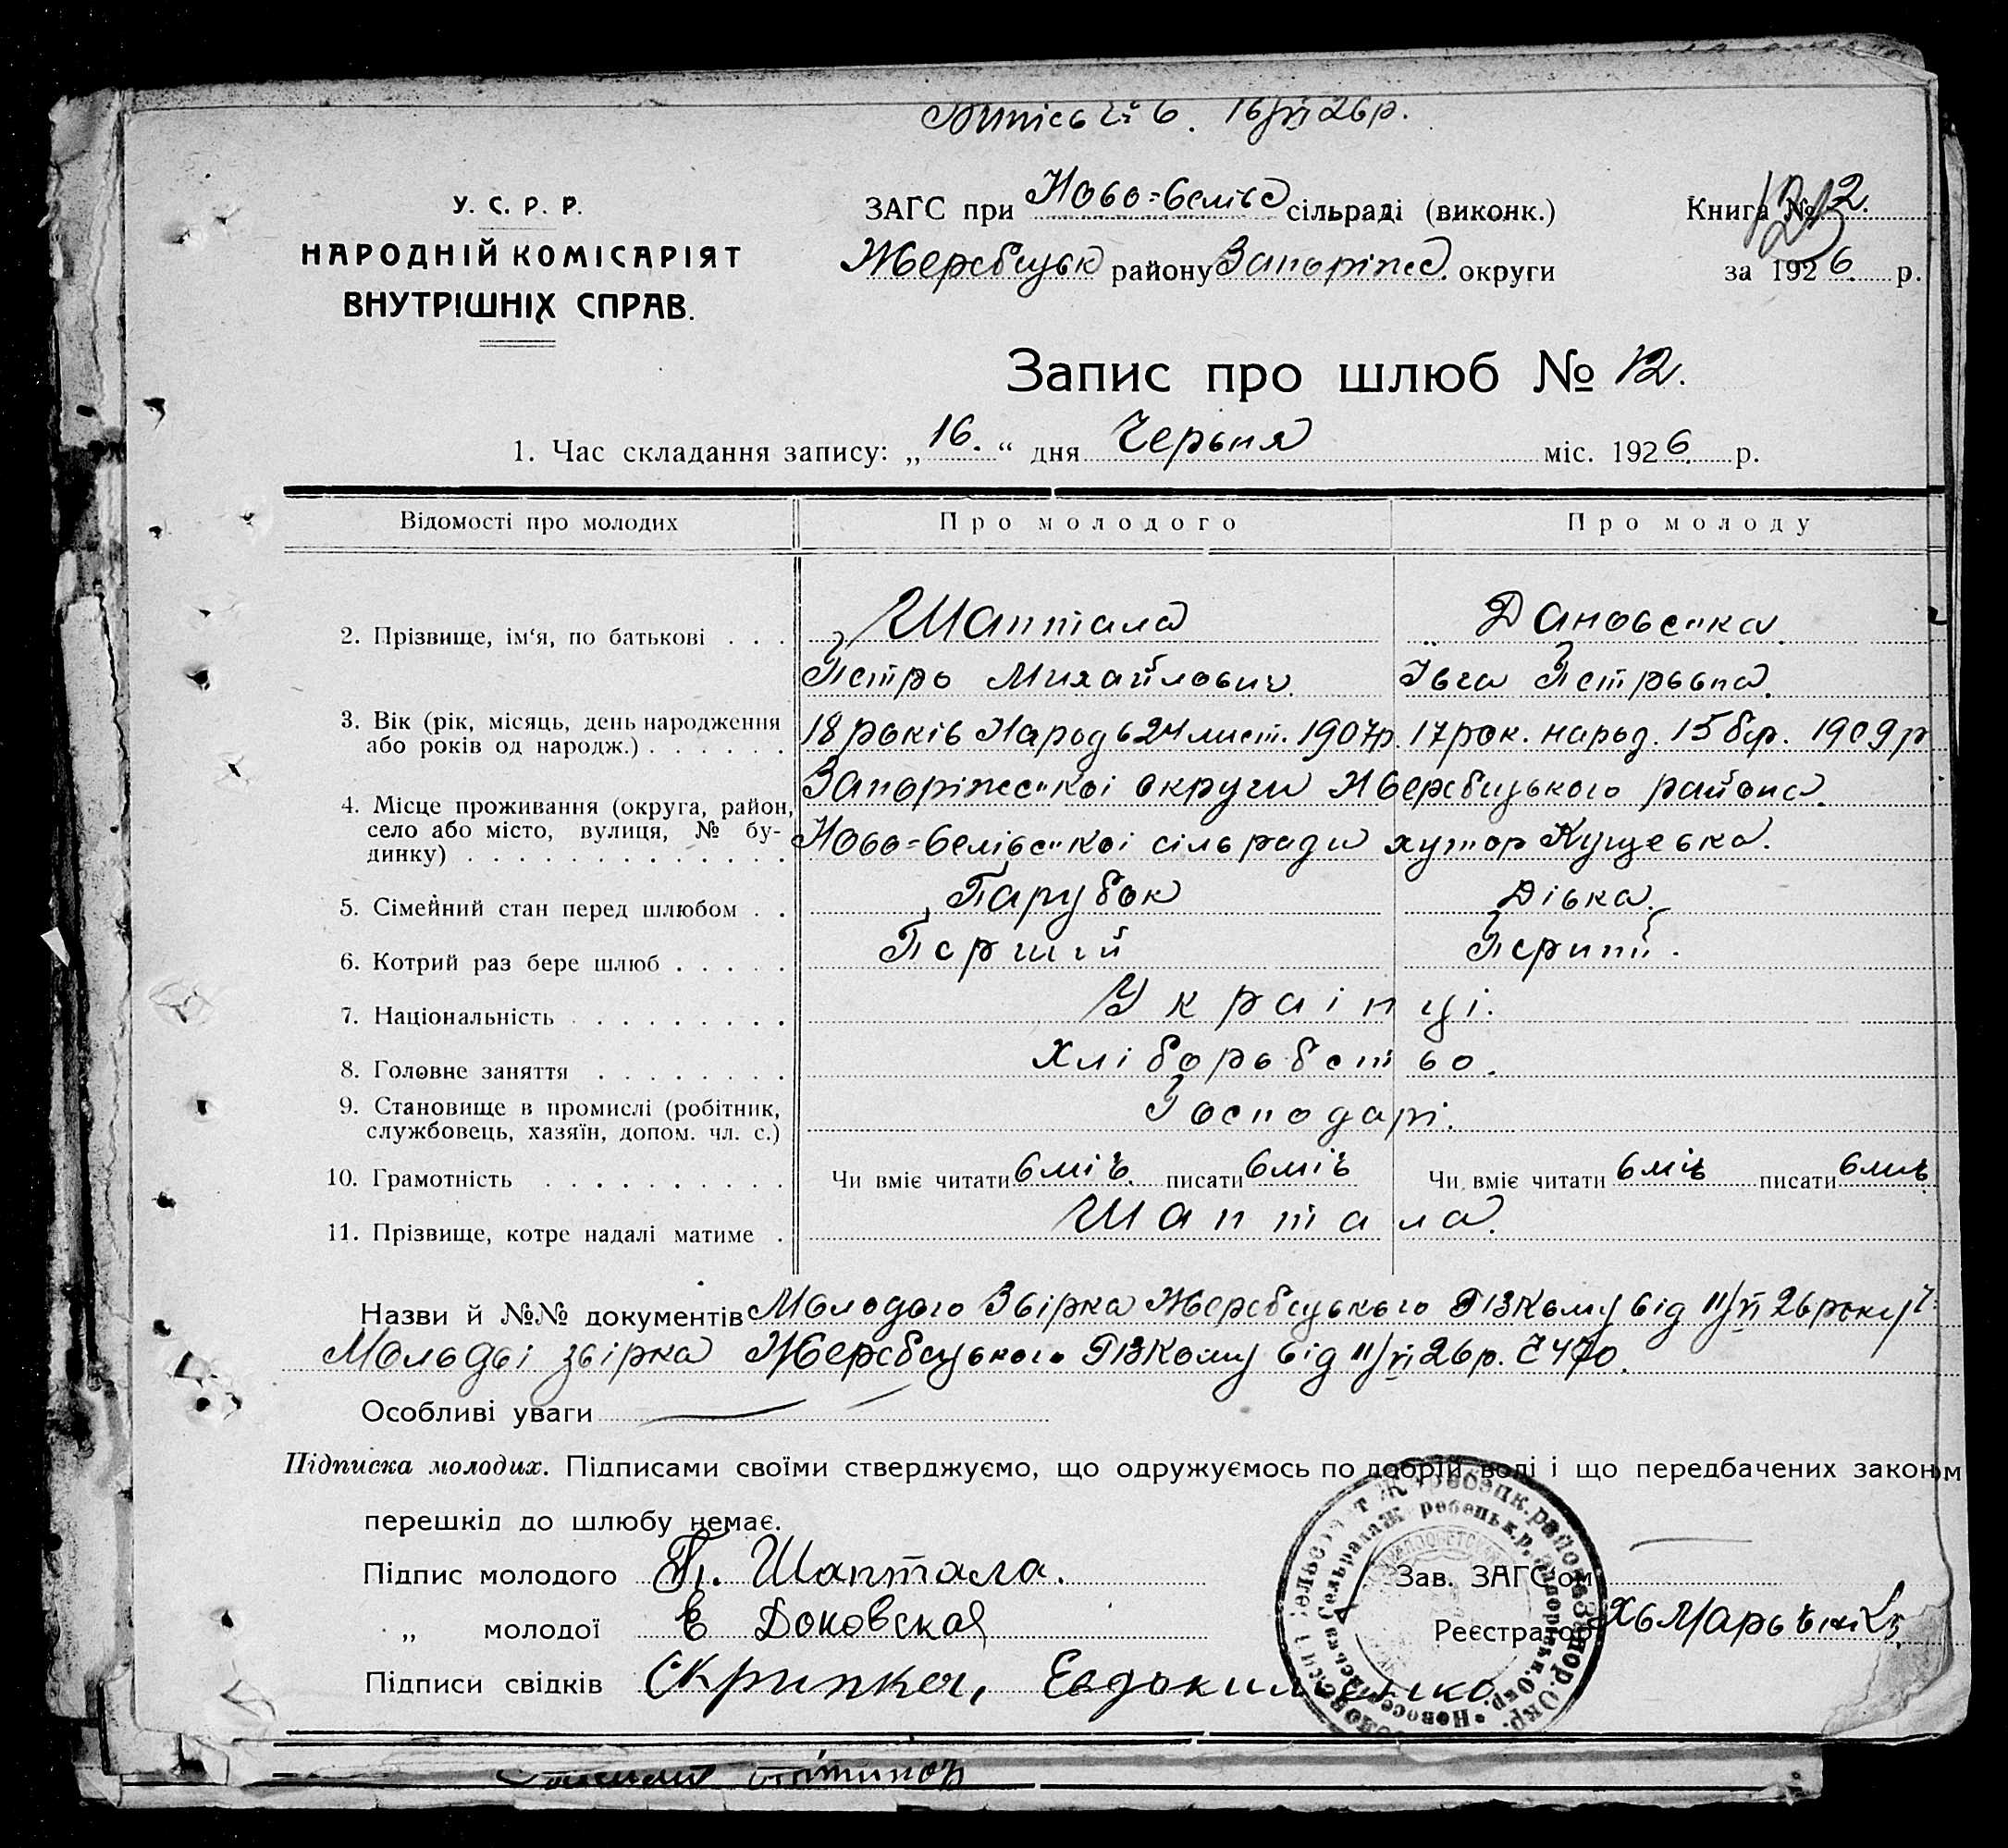 Витісь Ч 6. 16/VI 26 р.
У. С. Р. Р.
НАРОДНІЙ КОМІСАРІЯТ
ВНУТРІШНІХ СПРАВ.
ЗАГС при Ново-Селівс сільраді (виконк.)
Жеребецьк району Запоріжс. округи
Книга № 2.
за 1926. р.
Запис про шлюб № 12.
1. Час складання запису: „16.“ дня Черьня міс. 1926. р.
Відомості про молодих Про молодого Про молоду
2. Прізвище, ім‘я, по батькові . . . Шаптала Дановська.
Петро Михайлович. Івга Петрівна.
3. Вік (рік, місяць, день народження 18 років Народ 24 лист. 1907р. 17 рок. народ. 15 1909 р
або років од народж.) . . . . . .
4. Місце проживання (округа, район, Запоріжської округи Жеребецького района.
село або місто, вулиця, № бу- Ново-Селівської сільради хутор Кущевка.
динку) . . . . . . . . . . . . .
5. Сімейний стан перед шлюбом . . Парубок Дівка.
6. Котрий раз бере шлюб . . . . . Перший Перший.
7. Національність . . . . . . . . . Українці.
8. Головне заняття . . . . . . . . Хліборобство.
9. Становище в промислі (робітник, Господарі.
службовець, хазяїн, допом. чл. с.)
10. Грамотність . . . . . . . . . . Чи вміє читати вміє. писати вміє Чи вміє читати вміє писати вміє
11. Прізвище, котре надалі матиме . Шаптала.
Назви й №№ документів Молодого Звірка Жеребецького РВКому від 11/VI 26 року Ч
Молодої звірка Жеребецького РВКому від 11/VI 26 р. Ч 470.
Особливі уваги
Підписка молодих. Підписами своїми стверджуємо, що одружуємось по добрій волі і що передбачених законом
перешкід до шлюбу немає.
Підпис молодого П. Шаптала.
„ молодої Е Доновская
Підписи свідків Скрипка, Евдокименко
Зав. ЗАГС‘ом
Реєстратор